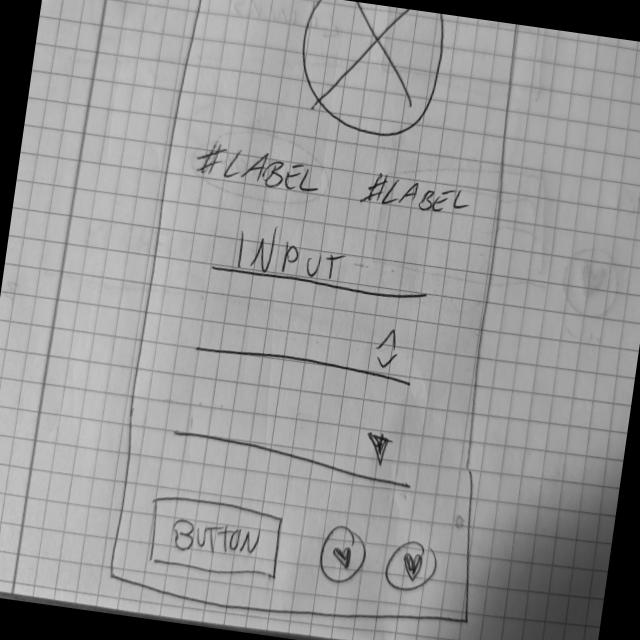 #LABEL #LABEL
INPUT
BUTTON